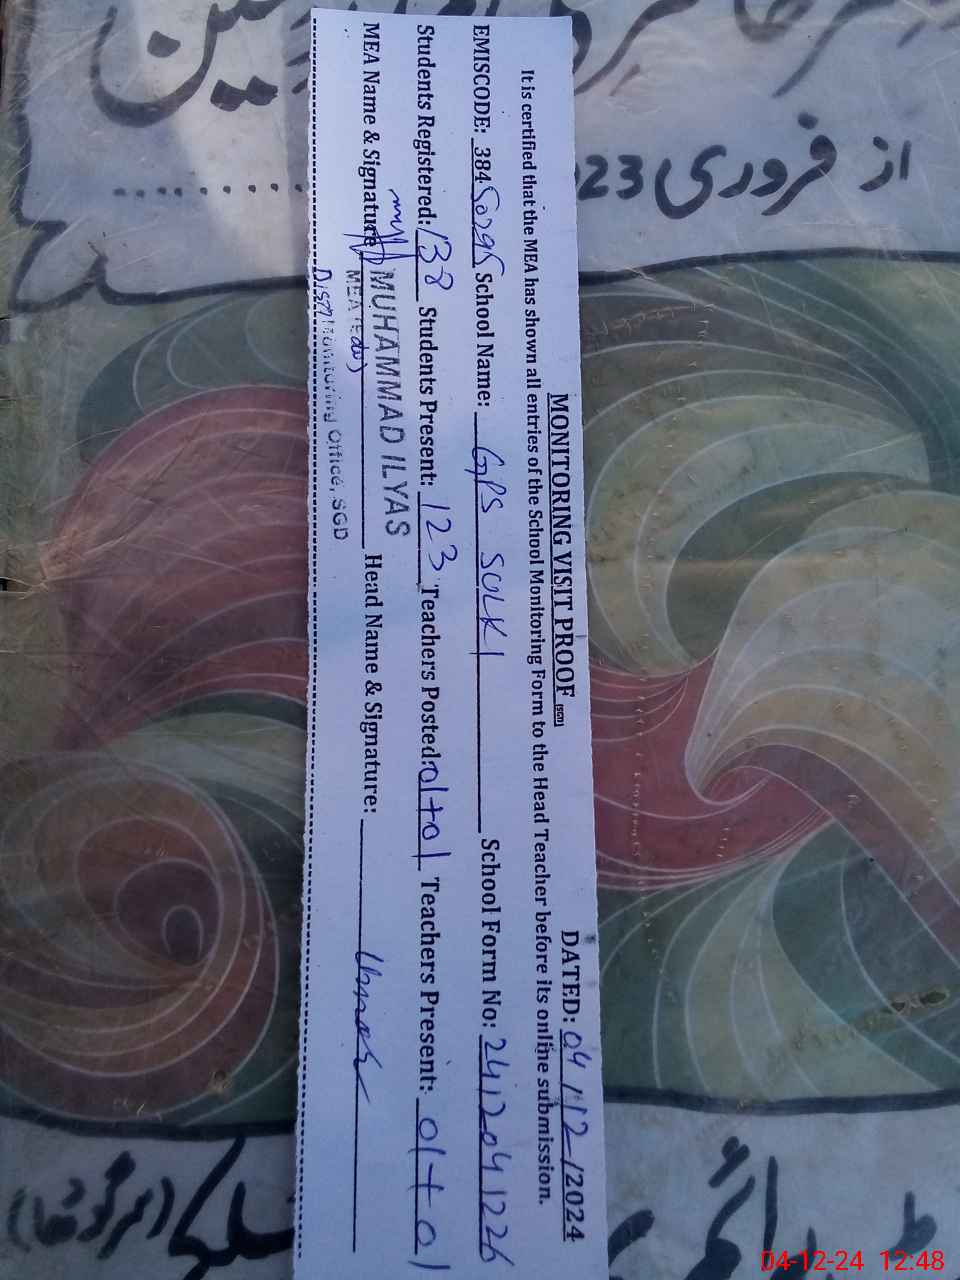 از فروری 2023
MONITORING VISIT PROOF (SGD)
DATED: 04/12/2024
It is certified that the MEA has shown all entries of the School Monitoring Form to the Head Teacher before its online submission.
EMISCODE: 38450295 School Name: GPS SULKI School Form No: 2412041226
Students Registered: 138 Students Present: 123 Teachers Posted: 01+01 Teachers Present: 01+01
MEA Name & Signature MUHAMMAD ILYAS Head Name & Signature:
MEA (Edu)
Distt Monitoring Office, SGD
04-12-24 12:48